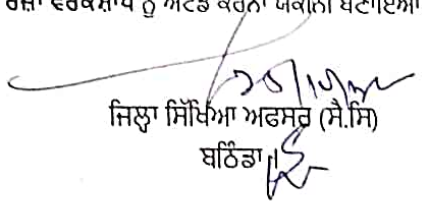 ਰਜ਼ਾ ਵਰਕਸ਼ਾਪ ਨੂੰ ਅਟੈਂਡ ਕਰਨਾ ਯਕੀਨੀ ਬਣਾਇਆ
ਜਿਲ੍ਹਾ ਸਿੱਖਿਆ ਅਫਸਰ (ਸੈ.ਸਿ)
ਬਠਿੰਡਾ।